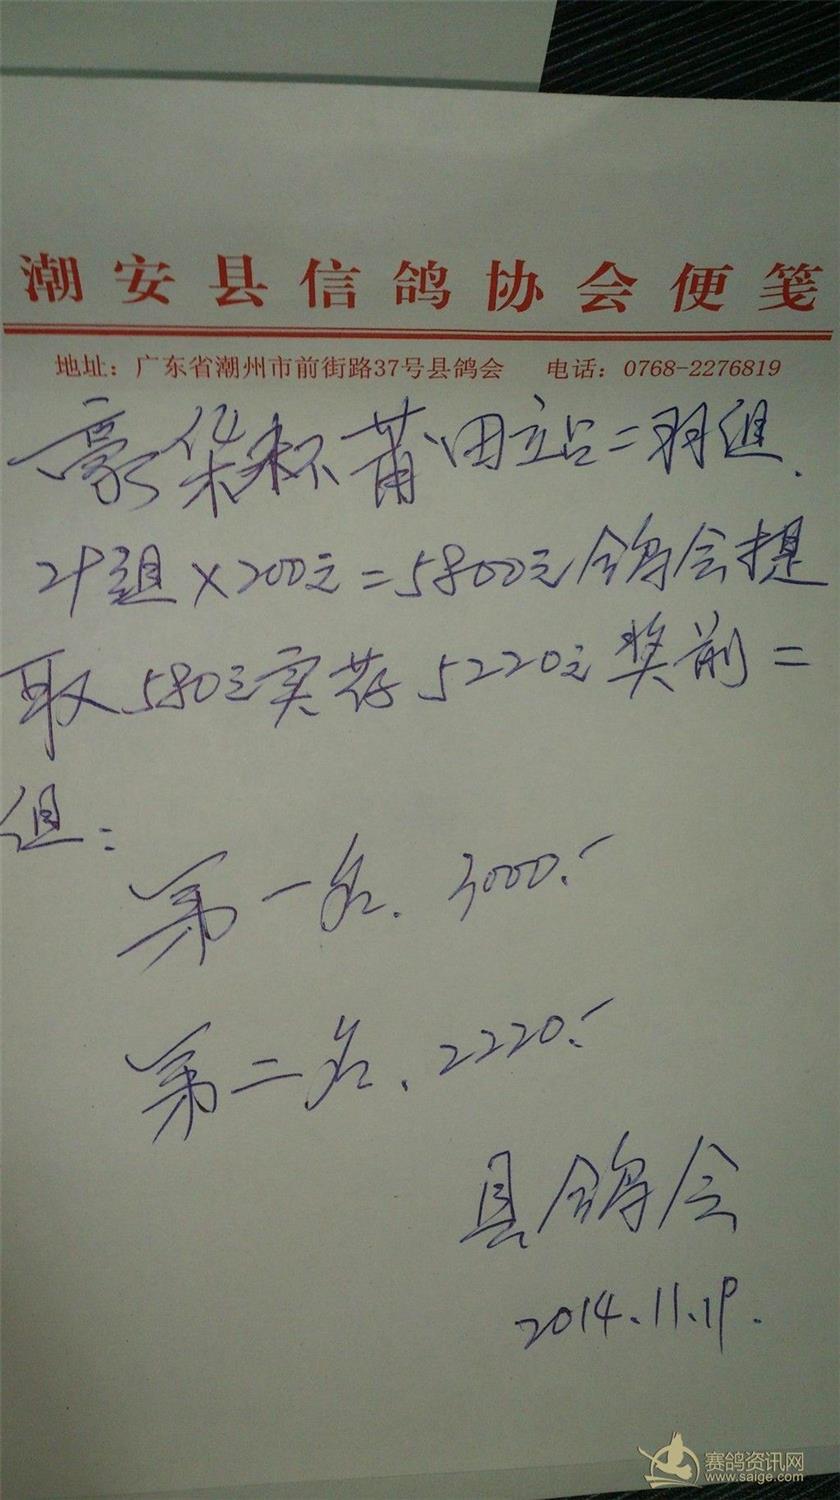 潮安县信鸽协会便笺
地址：广东省潮州市前街路37号县鸽会 电话：0768-2276819
豪华杯莆田立占二羽组.
29组×200元=5800元鸽会提
取580元实存5220元奖前二
组：
第一名. 3000.-
第二名. 2220.-
县鸽会
2014.11.19.
赛鸽资讯网
www.saige.com